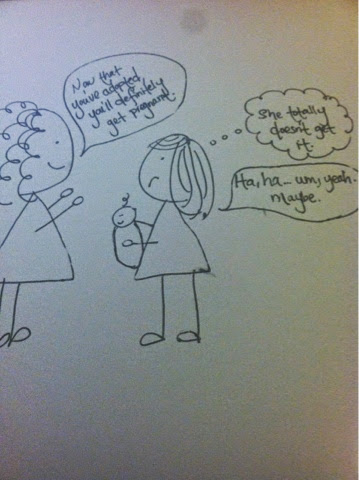 Now that
you've adopted,
you'll definitely
get pregnant.
She totally
doesn't get
it.
Ha, ha... um, yeah.
maybe.